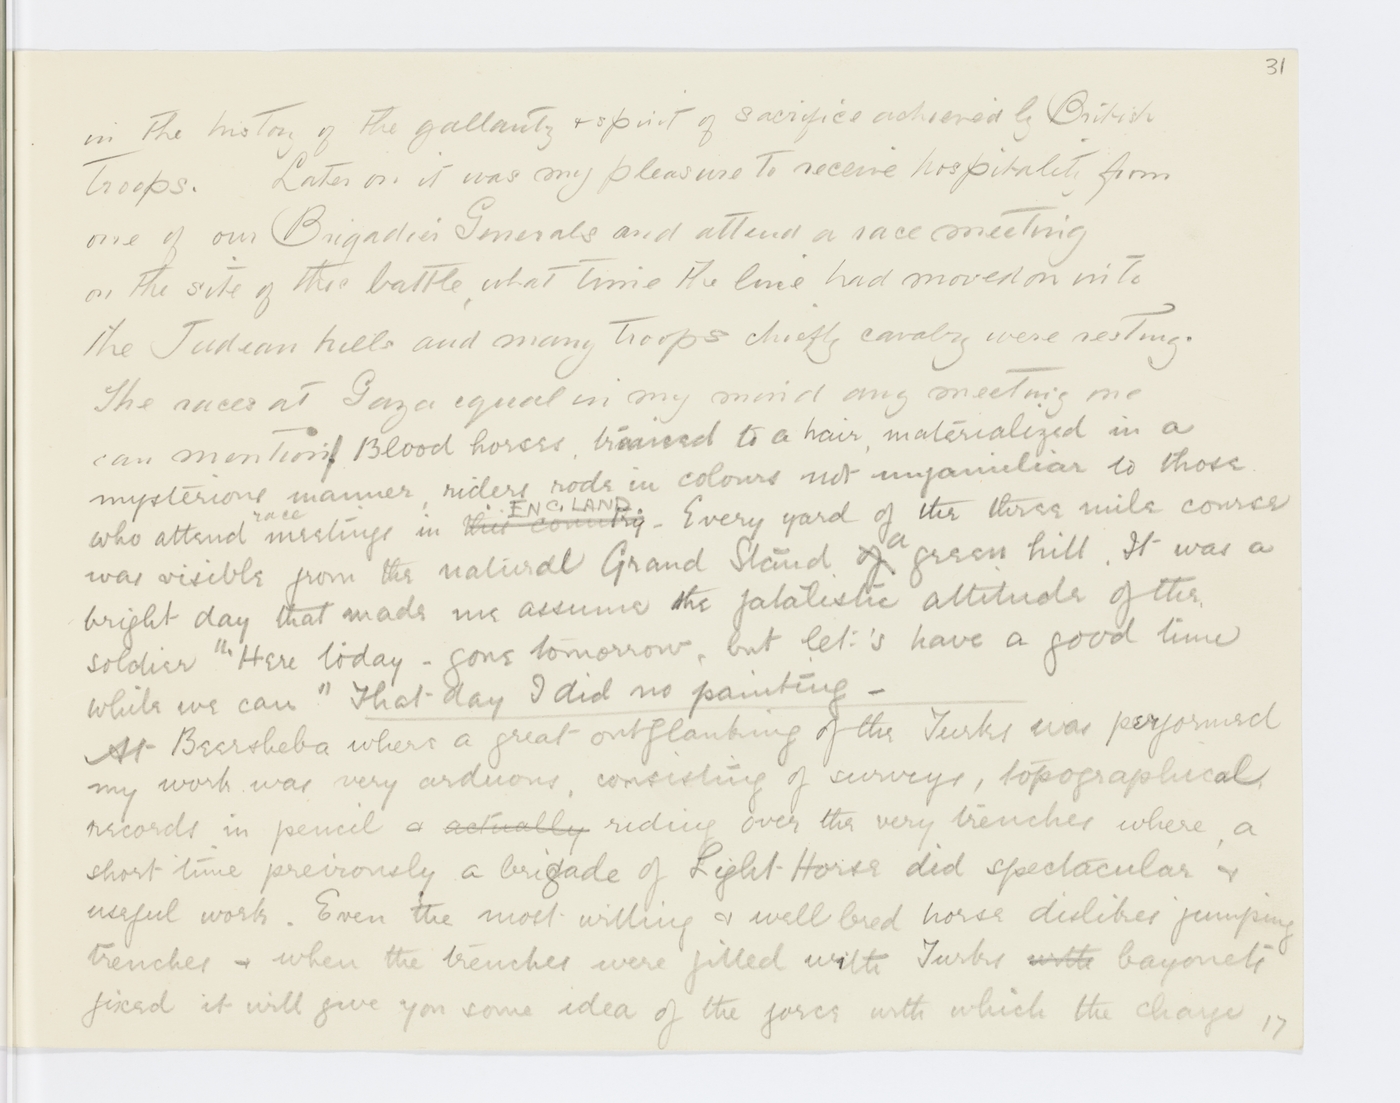 31
in the history of the gallantry & spirit of sacrifice achieved by British
troops. Later on it was my pleasure to receive hospitality from
one of our Brigadier Generals and attend a race meeting
on the site of this battle, what time the line had moved on into
the Judean hills and many troops chiefly cavalry were resting.
The races at Gaza equal in my mind any meeting one
can mention! Blood horses, trained to a hair, materialized in a
mysterious manner, riders rode in colours not unfamiliar to those
who attend race meetings in this country ENGLAND. - Every yard of the three mile course
was visible from the natural Grand Stand of a green hill. It was a
bright day that made me assume the fatalistic attitude of the
soldier "Here today - gone tomorrow, but let's have a good time
while we can" That day I did no painting -
At Beersheba where a great outflanking of the Turks was performed
my work was very arduous, consisting of surveys, topographical
records in pencil & actually riding over the very trenches where, a
short time preivously a brigade of Light Horse did spectacular &
useful work. Even the most willing & well bred horse dislikes jumping
trenches & when the trenches were filled with Turks with bayonets
fixed it will give you some idea of the force with which the charge
17